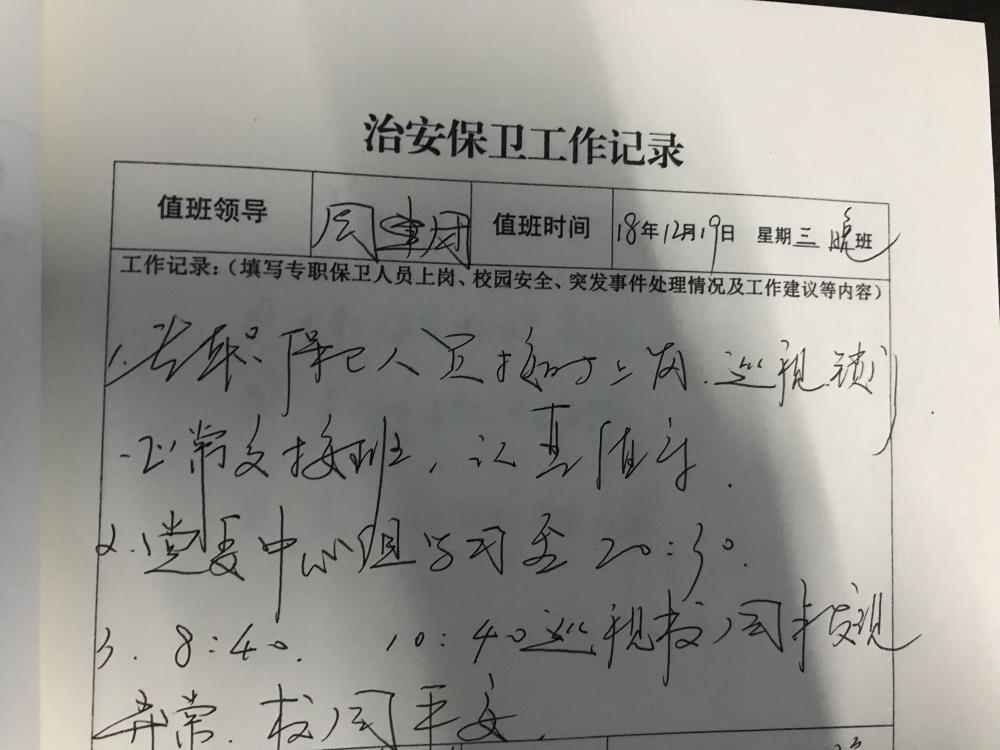 治安保卫工作记录
值班领导 值班时间 18年12月19日 星期三 晚班
工作记录:(填写专职保卫人员上岗、校园安全、突发事件处理情况及工作建议等内容)
1.专职保卫人员按时上岗.巡视
正常交接班,认真值守.
2.党委中心组学习至20:30.
3. 8:40. 10:40巡视校园未发现
异常.校园平安.